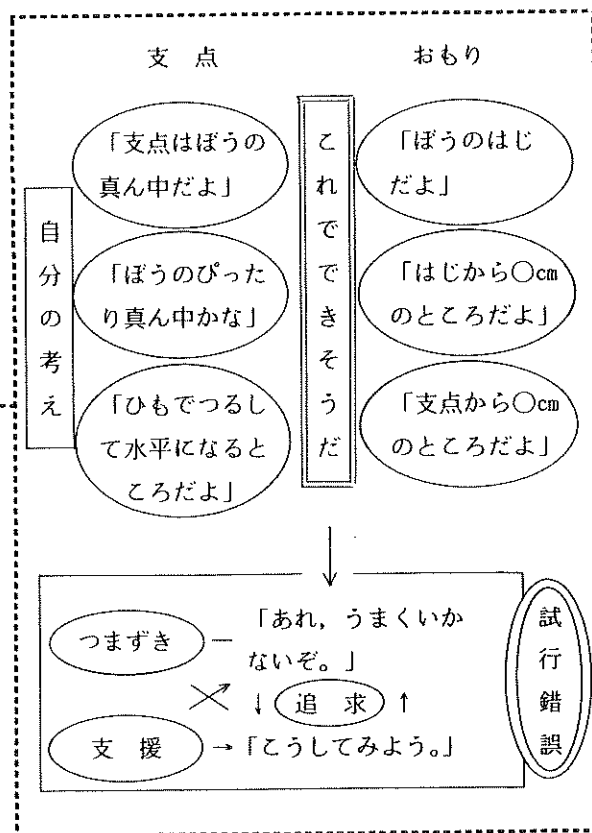 支 点
おもり
自分の考え
「支点はぼうの
真ん中だよ」
「ぼうのぴった
り真ん中かな」
「ひもでつるし
て水平になると
ころだよ」
これでできそうだ
「ぼうのはじ
だよ」
「はじから○cm
のところだよ」
「支点から○cm
のところだよ」
つまずき
「あれ，うまくいか
ないぞ。」
追 求
支 援
「こうしてみよう。」
試行錯誤